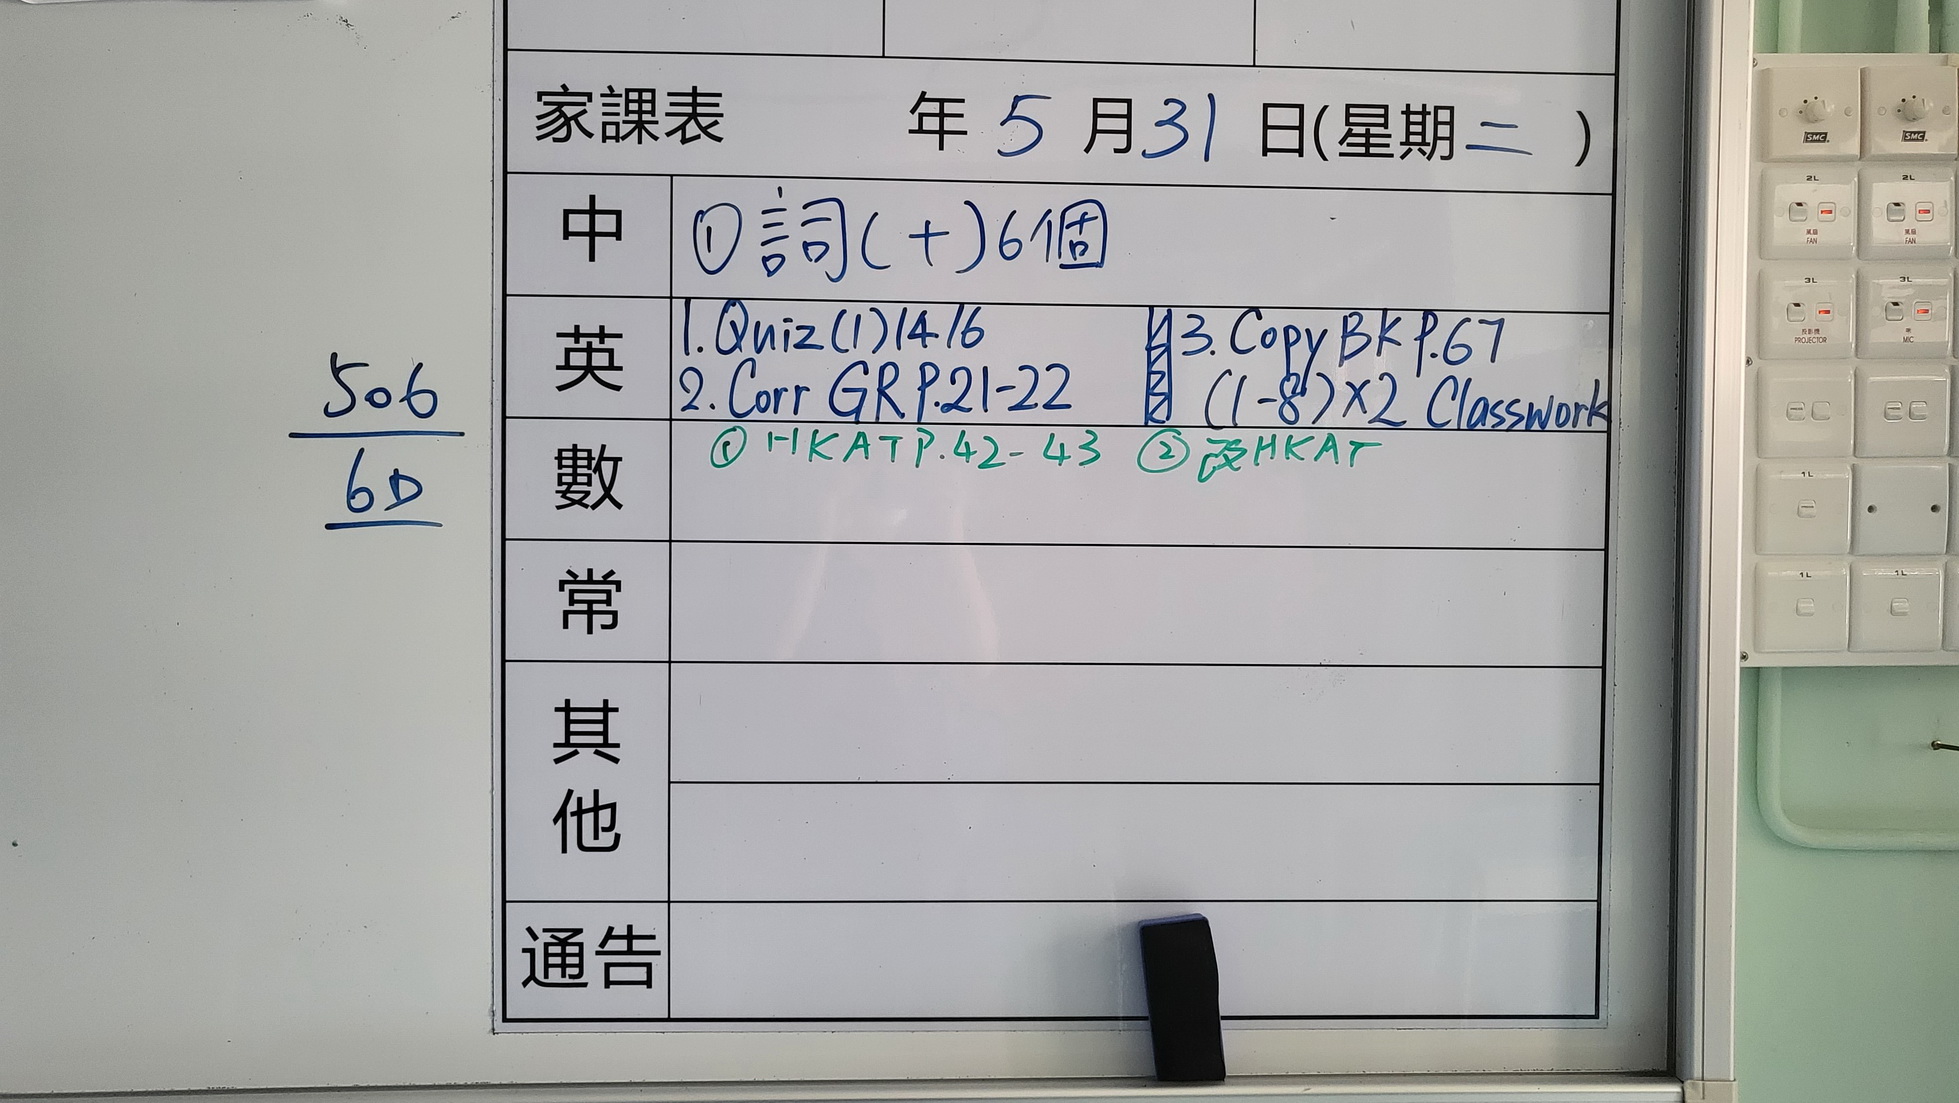 家課表 年 5 月 31 日(星期二 )
中 ① 詞(十)6個
英 1. Quiz (1) 14/6
2. Corr GR P.21-22
3. Copy BK P.67
(1-8)×2 Classwork
數 ① HKAT P.42-43 ② 改HKAT
常
其他
通告
506
6D
SMC
SMC
2L
2L
風扇
FAN
風扇
FAN
3L
3L
投影機
PROJECTOR
MIC
1L
1L
1L